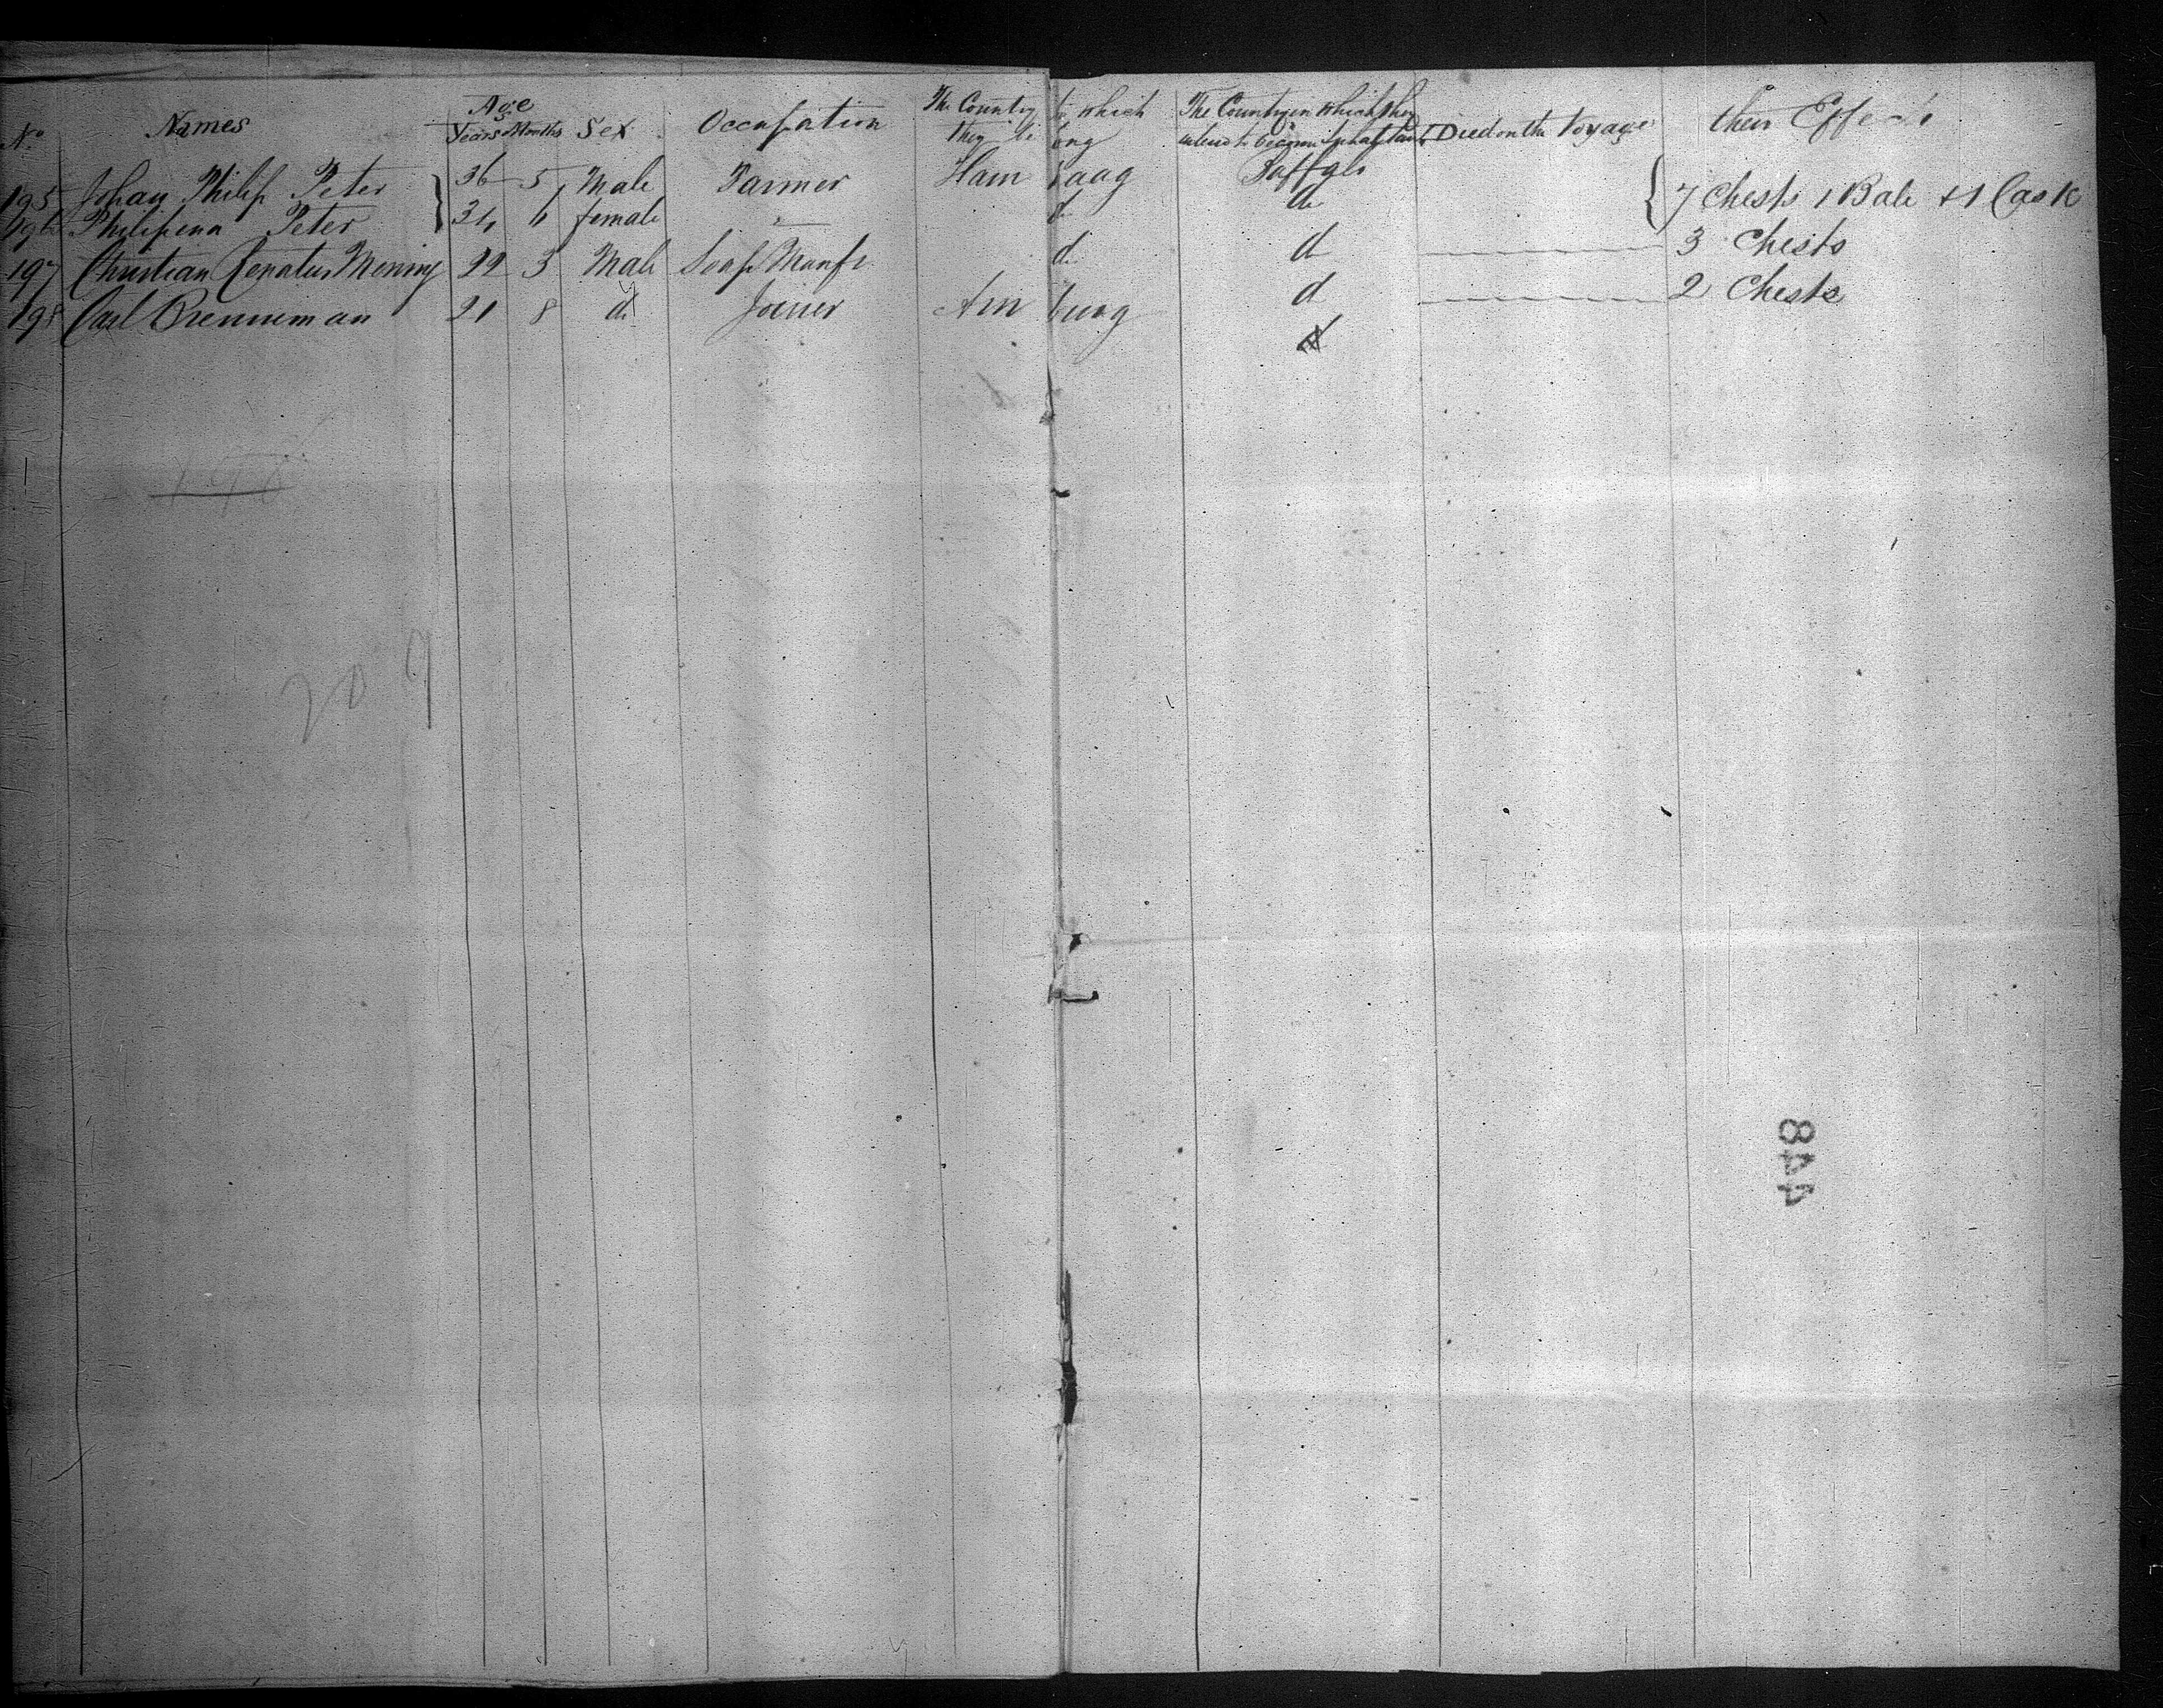 No Names Age Years Months Sex Occupation The Country to which they belong The Country in which they intend to become inhabitants Died on the Voyage their Effects
195 Johan Philip Peter 36 5 Male Farmer Ham Buffalo
196 Philipina Peter 34 6 female " d d { 7 Chests 1 Bale + 1 Cask
197 Christian Renatus Mening 22 3 Male Soap Manfr d d 3 Chests
198 Carl Brenneman 21 8 d Joiner d 2 Chests
d
198
209
448